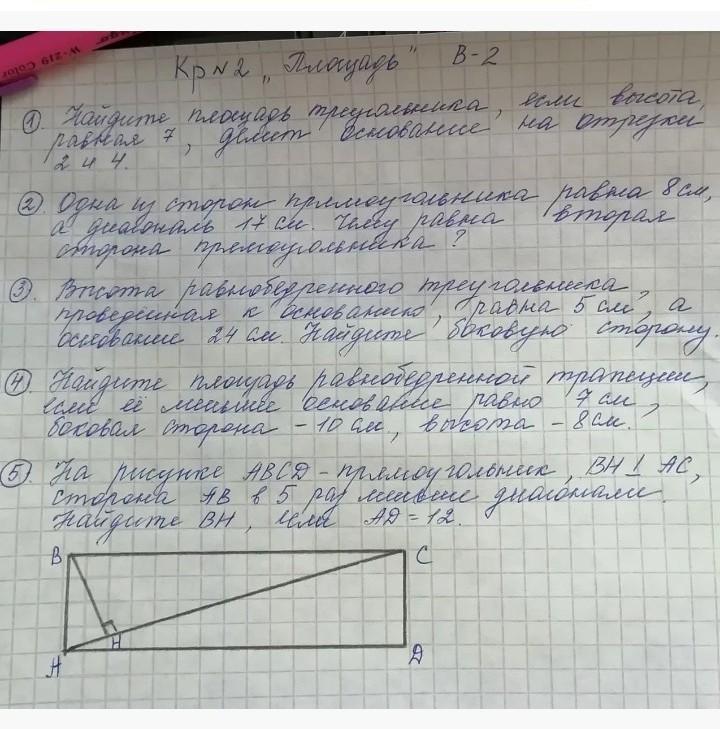 W-219 Color
Кр №2 „Площадь" В-2
① Найдите площадь треугольника, если высота,
равная 7, делит основание на отрезки
2 и 4.
② Одна из сторон прямоугольника равна 8 см,
а диагональ 17 см. Чему равна вторая
сторона прямоугольника?
③ Высота равнобедренного треугольника,
проведённая к основанию, равна 5 см, а
основание 24 см. Найдите боковую сторону.
④ Найдите площадь равнобедренной трапеции,
если её меньшее основание равно 7 см,
боковая сторона - 10 см, высота - 8 см.
⑤ На рисунке ABCD - прямоугольник, BH ⊥ AC,
сторона AB в 5 раз меньше диагонали.
Найдите BH, если AD = 12.
B C
H
A D